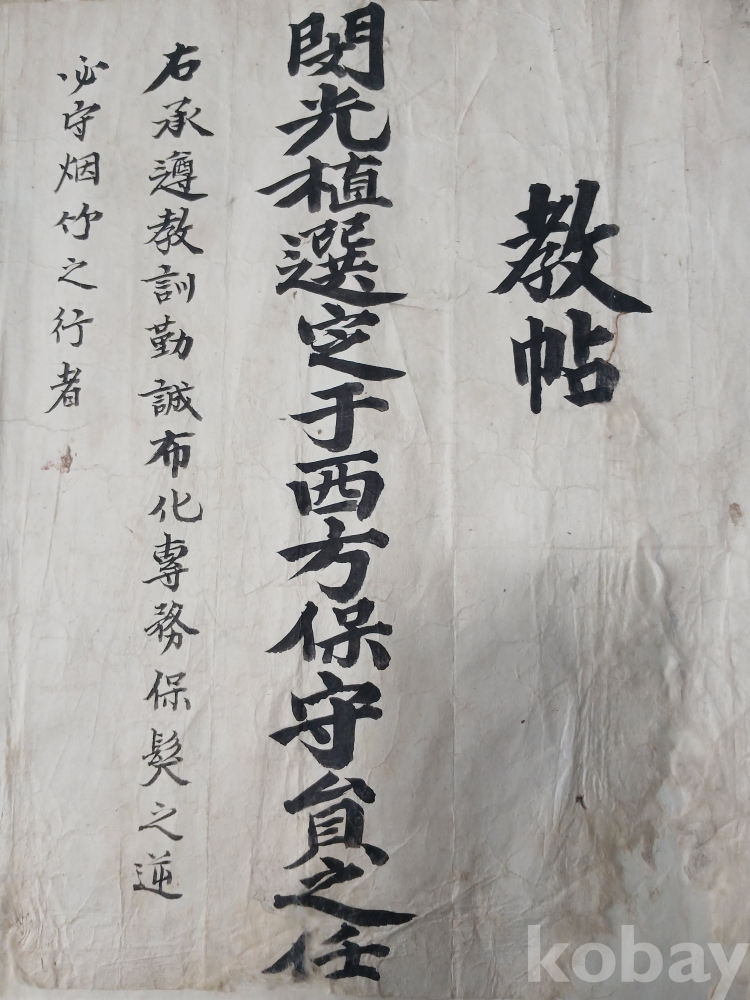 教帖
閔光植選定于西方保守員之任
右承遵教訓勤誠布化專務保髮之逆
必守烟竹之行者
kobay